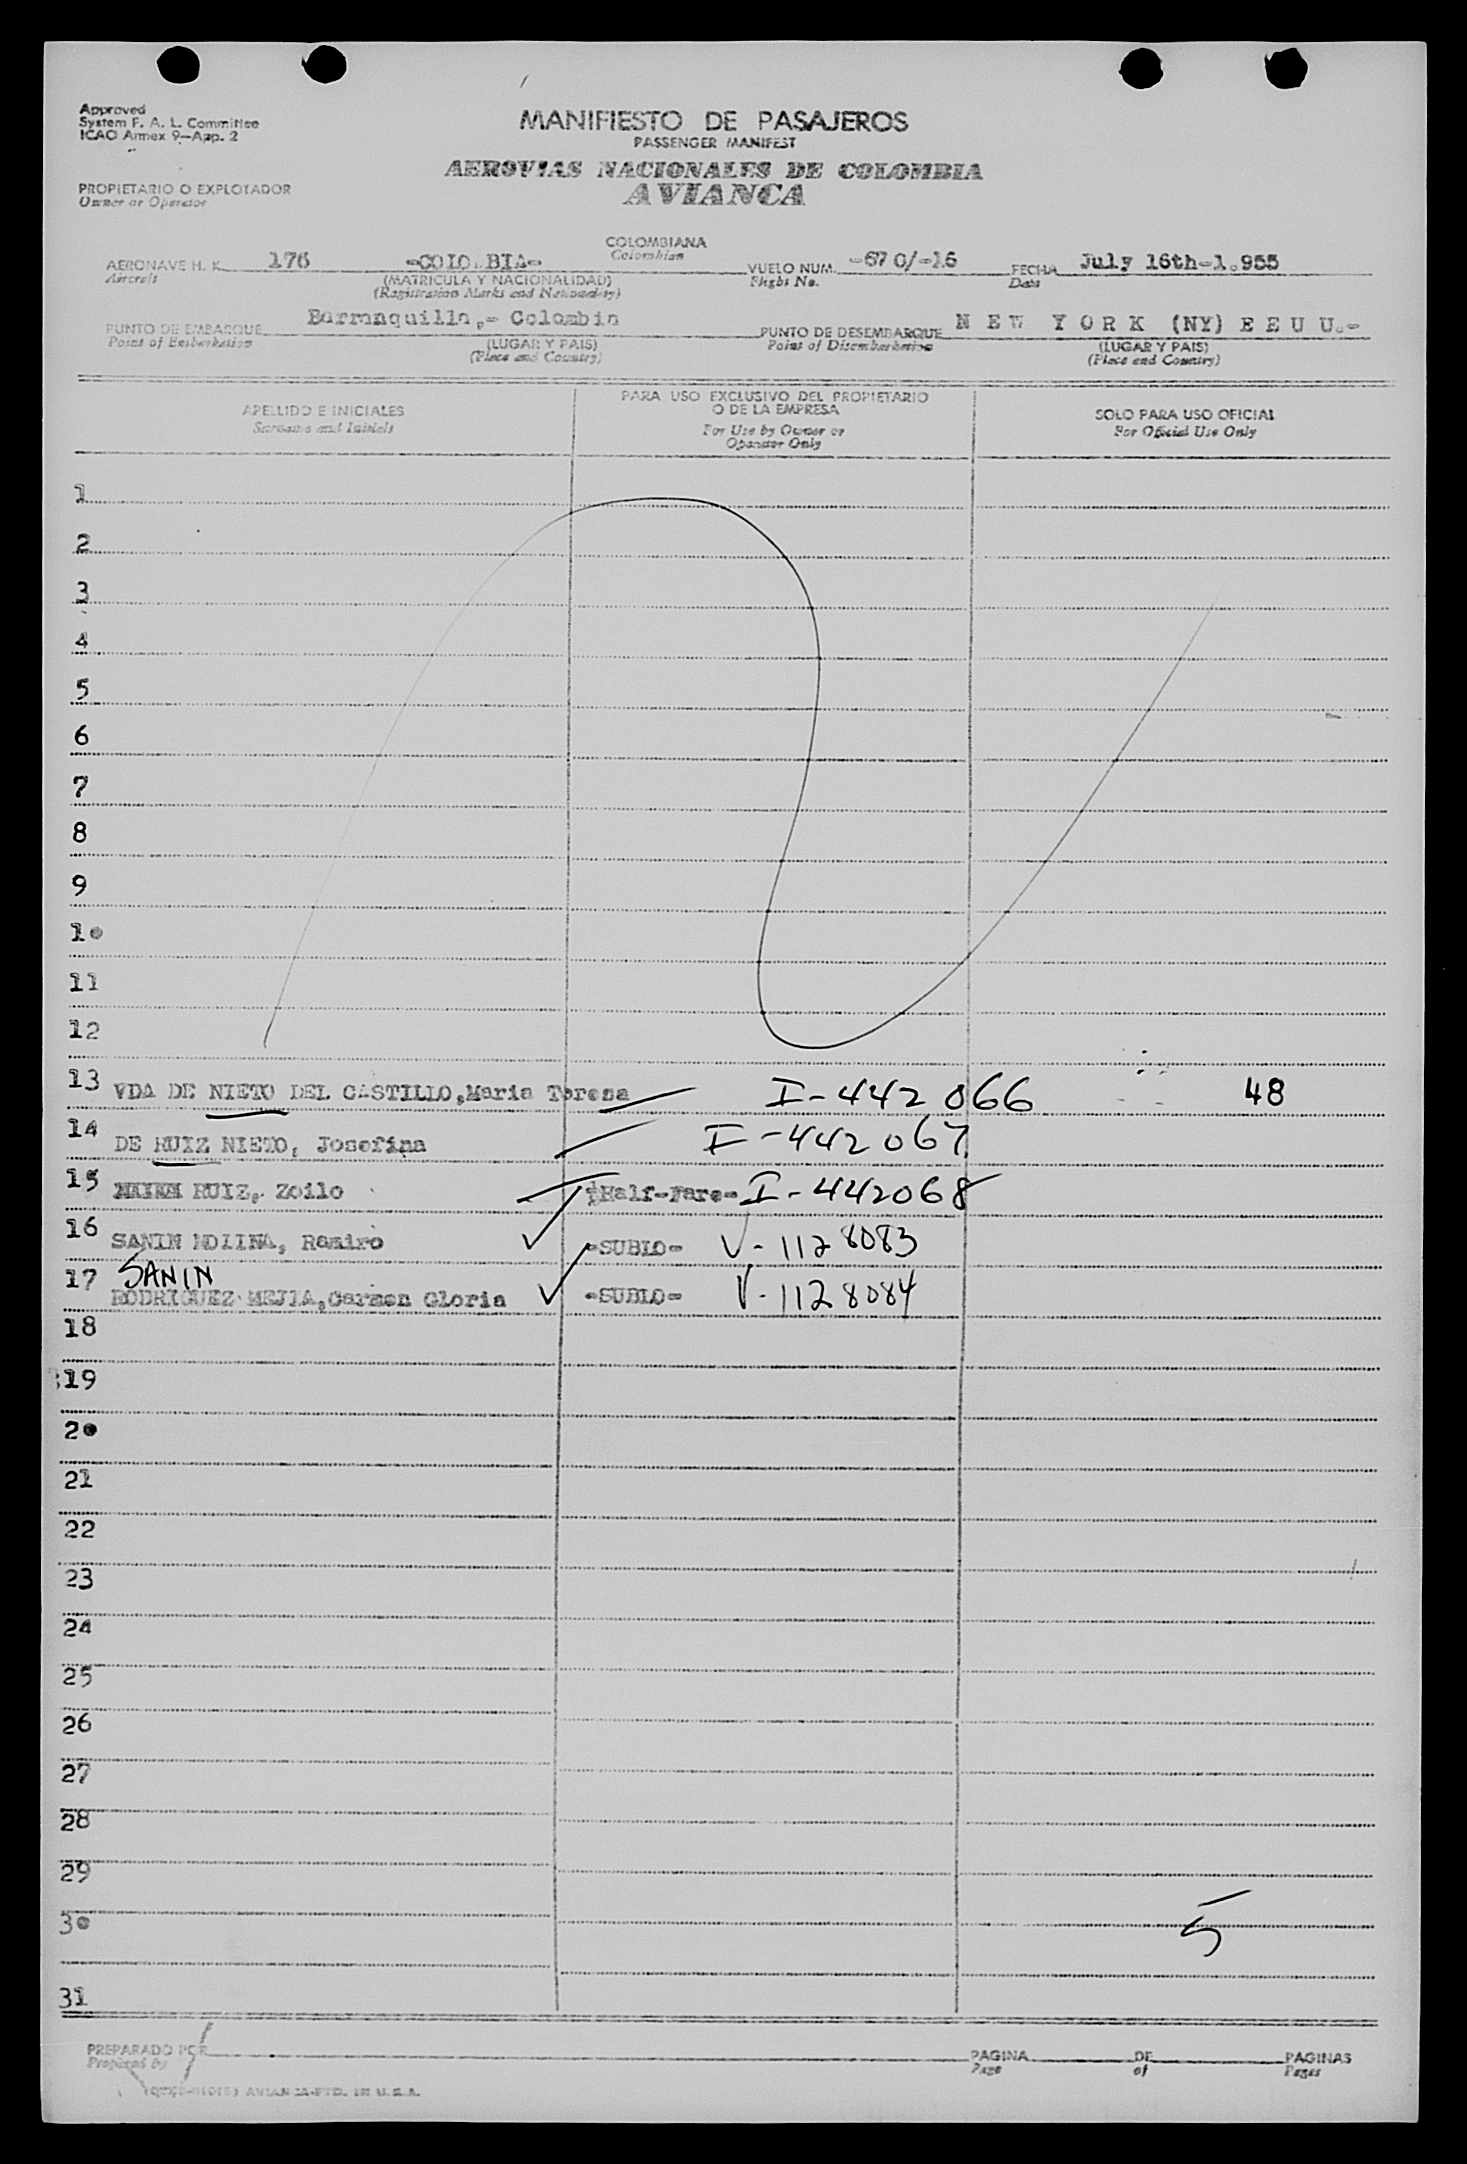 Approved
System F. A. L. Committee
ICAO Annex 9—App. 2
MANIFIESTO DE PASAJEROS
PASSENGER MANIFEST
AEROVIAS NACIONALES DE COLOMBIA
AVIANCA
PROPIETARIO O EXPLOTADOR
Owner or Operator
COLOMBIANA
Colombian
AERONAVE H. K. 176 -COLOMBIA- VUELO NUM. -670/-16 FECHA July 16th-1.955
Aircraft (MATRICULA Y NACIONALIDAD) Flight No. Date
(Registration Marks and Nationality)
PUNTO DE EMBARQUE Barranquilla,- Colombia PUNTO DE DESEMBARQUE N E W Y O R K (NY) E E U U.-
Point of Embarkation (LUGAR Y PAIS) Point of Disembarkation (LUGAR Y PAIS)
(Place and Country) (Place and Country)
APELLIDO E INICIALES PARA USO EXCLUSIVO DEL PROPIETARIO O DE LA EMPRESA SOLO PARA USO OFICIAL
Surname and Initials For Use by Owner or Operator Only For Official Use Only
1
2
3
4
5
6
7
8
9
10
11
12
13 VDA DE NIETO DEL CASTILLO,Maria Teresa I-442066 48
14 DE RUIZ NIETO, Josefina I-442067
15 RUIZ, Zoilo ½Half-Fare- I-442068
16 SANIN MOLINA, Ramiro -SUBLO- V-1128083
SANIN
17 RODRIGUEZ MEJIA,Carmen Gloria -SUBLO- V-1128084
18
19
20
21
22
23
24
25
26
27
28
29
30 5
31
PREPARADO POR PAGINA DE PAGINAS
Prepared by Page of Pages
AVIANCA-PTD. IN U.S.A.